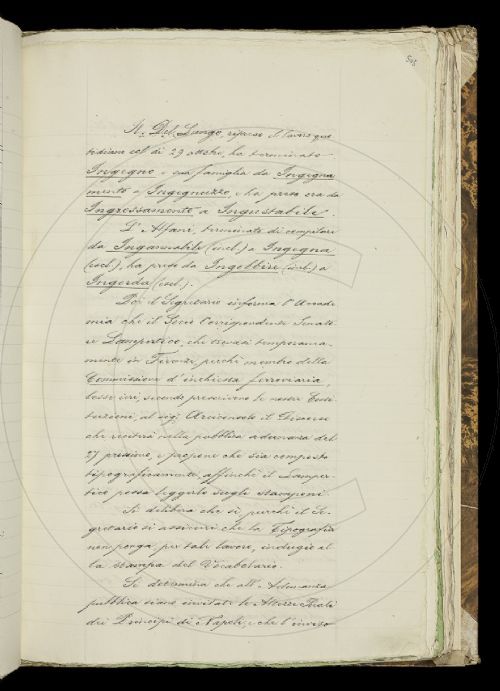 505
Il Del Lungo, ripreso il lavoro quo-
tidiano col dì 29 ottobre, ha terminato
Ingegno e sua famiglia da Ingegna
mento a Ingegnuzzo, e ha preso ora da
Ingessamento a Ingustabile.
L'Alfani, terminato di compilare
da Ingannabile (incl.) a Ingegna
(escl.), ha preso da Ingollire (incl.) a
Ingorda (escl.).
Poi il Segretario informa l'Accade
mia che il Socio Corrispondente Senato
re Lampertico, che trovasi temporanea-
mente in Firenze, perchè membro della
Commissione d'inchiesta ferroviaria,
lesse ieri, secondo prescrivono le nostre Costi
tuzioni, al sig. Arciconsolo il Discorso
che reciterà nella pubblica adunanza del
27 prossimo, e propone che sia composto
tipograficamente, affinchè il Lamper-
tico possa leggerlo sugli stamponi.
Si delibera che sì, purchè il Se-
gretario si assicuri che la Tipografia
non ponga, per tale lavoro, indugio al
la stampa del Vocabolario.
Si determina che all'Adunanza
pubblica siano invitati le Altezze Reali
dei Principi di Napoli, e che l'invito